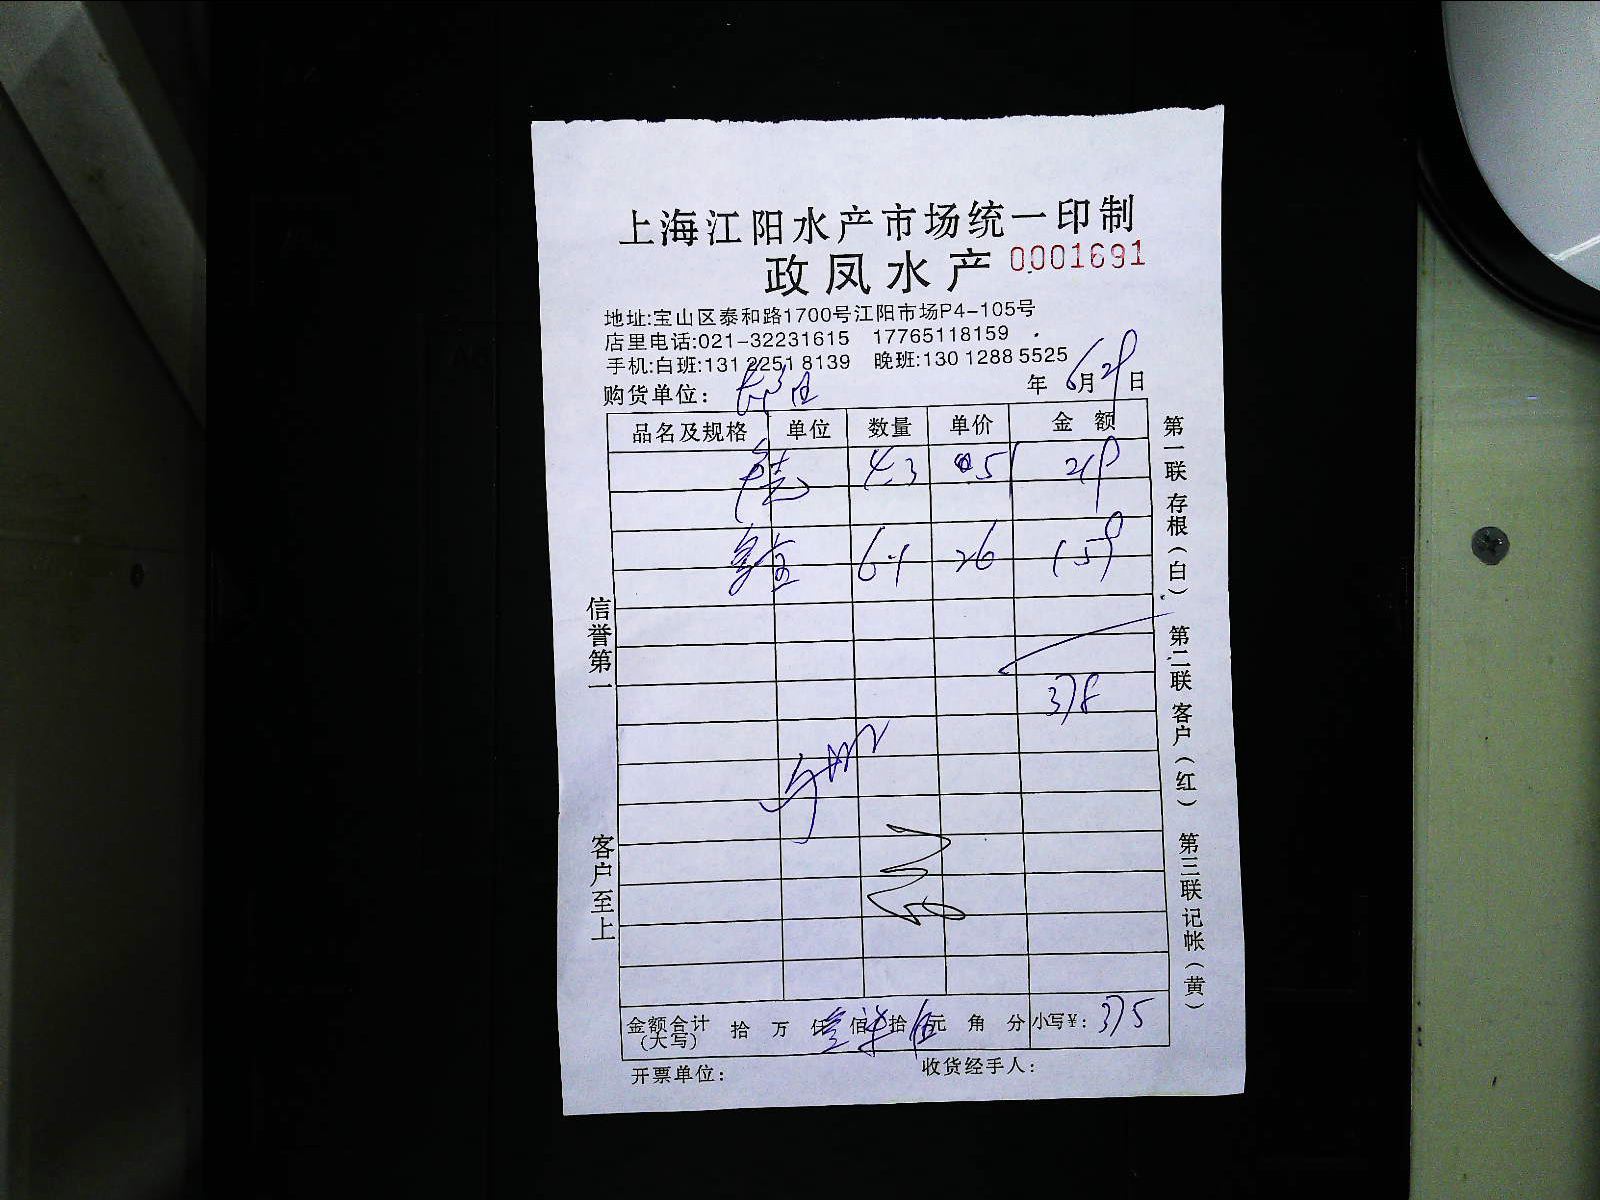 上海江阳水产市场统一印制
政凤水产 0001691
地址:宝山区泰和路1700号江阳市场P4-105号
店里电话:021-32231615 17765118159
手机:白班:131 2251 8139 晚班:130 1288 5525
购货单位: 年 6月29日
品名及规格 单位 数量 单价 金 额
4.3 51 219
6.1 26 159
378
金额合计(大写) 拾 万 仟 佰 拾 伍元 角 分 小写¥: 375
开票单位: 收货经手人:
信誉第一 客户至上
第一联 存根(白) 第二联 客户(红) 第三联 记帐(黄)